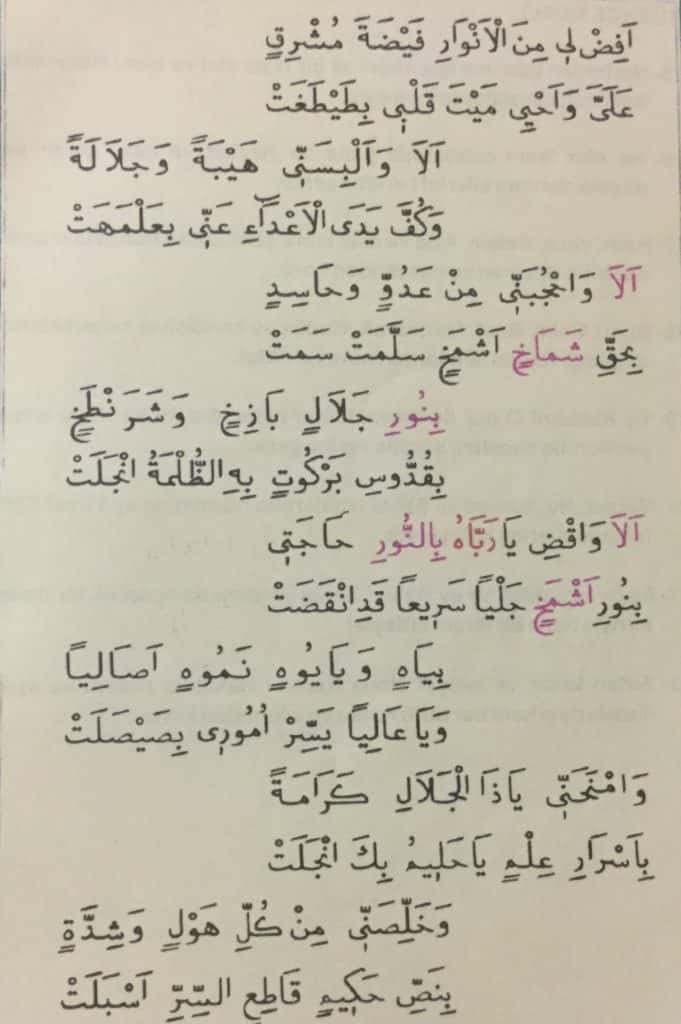 اَفِضْ لِى مِنَ الْاَنْوَارِ فَيْضَةَ مُشْرِقٍ
عَلَىَّ وَاَحْىِ مَيْتَ قَلْبِى بِطَيْطَغَتْ
اَلَا وَاَلْبِسَنِّى هَيْبَةً وَجَلَالَةً
وَكُفَّ يَدَى الْاَعْدَاءِ عَنِّى بِعَلْمَهَتْ
اَلَا وَاحْجُبَنِّى مِنْ عَدُوٍّ وَحَاسِدٍ
بِحَقِّ شَمَاخٍ اَشْمَخٍ سَلَّمَتْ سَمَتْ
بِنُورِ جَلَالٍ بَازِخٍ وَشَرَنْطَخٍ
بِقُدُّوسِ بَرْكُوتٍ بِهِ الظُّلْمَةُ انْجَلَتْ
اَلَا وَاقْضِ يَارَبَّاهُ بِالنُّورِ حَاجَتِى
بِنُورِ اَشْمَخٍ جَلْيًا سَرِيعًا قَدِانْقَضَتْ
بِيَاهٍ وَيَايُوهٍ نَمُوهٍ اَصَالِيًا
وَيَاعَالِيًا يَسِّرْ اُمُورِى بِصَيْصَلَتْ
وَامْنَحَنِّى يَاذَاالْجَلَالِ كَرَامَةً
بِاَسْرَارِ عِلْمٍ يَاحَلِيمُ بِكَ انْجَلَتْ
وَخَلِّصَنِّى مِنْ كُلِّ هَوْلٍ وَشِدَّةٍ
بِنَصِّ حَكِيمٍ قَاطِعِ السِّرِّ اَسْبَلَتْ